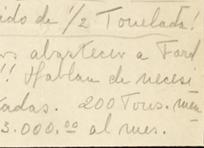 ido de 1/2 Tonelada!
abastecer a Ford
!! Hablan de necesi
tadas. 200 Tons. men
3.000.00 al mes.